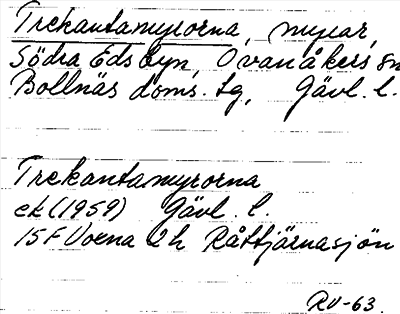 Trekantamyrorna, myrar,
Södra Edsbyn, Ovanåkers sn
Bollnäs doms. tg, Gävl. l.
Trekantamyrorna
ek (1959) Gävl. l.
15F Voxna 2h Råttjärnasjön
RU-63.